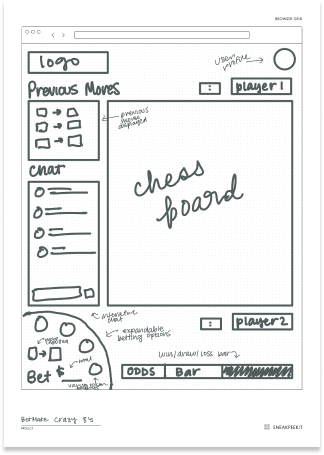 BROWSER GRID
logo
user profile
Previous Moves
:
player 1
previous moves displayed
Chat
chess
board
interactive chat
expandable
betting options
:
player 2
win/draw/loss bar
ODDS
Bar
Bet $
BetMate Crazy 8's
PROJECT
SNEAKPEEKIT